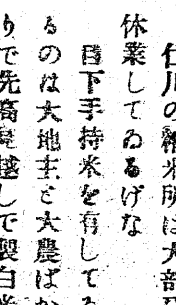 仁川の精米所は大部
休業してゐるげな
目下手持米を有して
るのは大地主と大農ばか
りで先高見越しで製白米